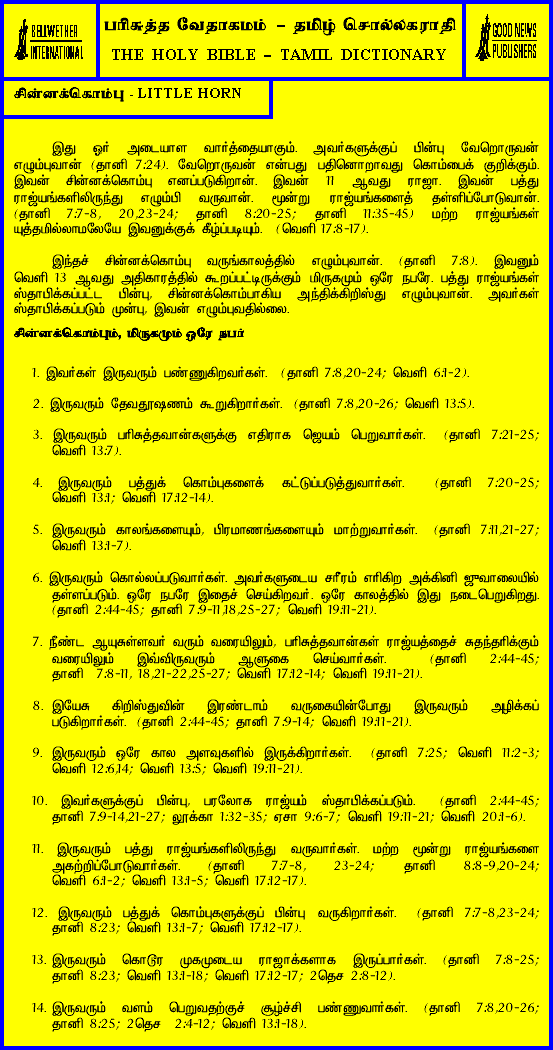 BELLWETHER
INTERNATIONAL
பரிசுத்த வேதாகமம் – தமிழ் சொல்லகராதி
THE HOLY BIBLE – TAMIL DICTIONARY
GOOD NEWS
PUBLISHERS
சின்னக்கொம்பு - LITTLE HORN
இது ஓர் அடையாள வார்த்தையாகும். அவர்களுக்குப் பின்பு வேறொருவன்
எழும்புவான் (தானி 7:24). வேறொருவன் என்பது பதினொறாவது கொம்பைக் குறிக்கும்.
இவன் சின்னக்கொம்பு எனப்படுகிறான். இவன் 11 ஆவது ராஜா. இவன் பத்து
ராஜ்யங்களிலிருந்து எழும்பி வருவான். மூன்று ராஜ்யங்களைத் தள்ளிப்போடுவான்.
(தானி 7:7-8, 20,23-24; தானி 8:20-25; தானி 11:35-45) மற்ற ராஜ்யங்கள்
யுத்தமில்லாமலேயே இவனுக்குக் கீழ்ப்படியும். (வெளி 17:8-17).
இந்தச் சின்னக்கொம்பு வருங்காலத்தில் எழும்புவான். (தானி 7:8). இவனும்
வெளி 13 ஆவது அதிகாரத்தில் கூறப்பட்டிருக்கும் மிருகமும் ஒரே நபரே. பத்து ராஜ்யங்கள்
ஸ்தாபிக்கப்பட்ட பின்பு, சின்னக்கொம்பாகிய அந்திக்கிறிஸ்து எழும்புவான். அவர்கள்
ஸ்தாபிக்கப்படும் முன்பு, இவன் எழும்புவதில்லை.
சின்னக்கொம்பும், மிருகமும் ஒரே நபர்
1. இவர்கள் இருவரும் பண்ணுகிறவர்கள். (தானி 7:8,20-24; வெளி 6:1-2).
2. இருவரும் தேவதூஷணம் கூறுகிறார்கள். (தானி 7:8,20-26; வெளி 13:5).
3. இருவரும் பரிசுத்தவான்களுக்கு எதிராக ஜெயம் பெறுவார்கள். (தானி 7:21-25;
வெளி 13:7).
4. இருவரும் பத்துக் கொம்புகளைக் கட்டுப்படுத்துவார்கள். (தானி 7:20-25;
வெளி 13:1; வெளி 17:12-14).
5. இருவரும் காலங்களையும், பிரமாணங்களையும் மாற்றுவார்கள். (தானி 7:11,21-27;
வெளி 13:1-7).
6. இருவரும் கொல்லப்படுவார்கள். அவர்களுடைய சரீரம் எரிகிற அக்கினி ஜுவாலையில்
தள்ளப்படும். ஒரே நபரே இதைச் செய்கிறவர். ஒரே காலத்தில் இது நடைபெறுகிறது.
(தானி 2:44-45; தானி 7:9-11,18,25-27; வெளி 19:11-21).
7. நீண்ட ஆயுசுள்ளவர் வரும் வரையிலும், பரிசுத்தவான்கள் ராஜ்யத்தைச் சுதந்தரிக்கும்
வரையிலும் இவ்விருவரும் ஆளுகை செய்வார்கள். (தானி 2:44-45;
தானி 7:8-11, 18,21-22,25-27; வெளி 17:12-14; வெளி 19:11-21).
8. இயேசு கிறிஸ்துவின் இரண்டாம் வருகையின்போது இருவரும் அழிக்கப்
படுகிறார்கள். (தானி 2:44-45; தானி 7:9-14; வெளி 19:11-21).
9. இருவரும் ஒரே கால அளவுகளில் இருக்கிறார்கள். (தானி 7:25; வெளி 11:2-3;
வெளி 12:6,14; வெளி 13:5; வெளி 19:11-21).
10. இவர்களுக்குப் பின்பு, பரலோக ராஜ்யம் ஸ்தாபிக்கப்படும். (தானி 2:44-45;
தானி 7:9-14,21-27; லூக்கா 1:32-35; ஏசா 9:6-7; வெளி 19:11-21; வெளி 20:1-6).
11. இருவரும் பத்து ராஜ்யங்களிலிருந்து வருவார்கள். மற்ற மூன்று ராஜ்யங்களை
அகற்றிப்போடுவார்கள். (தானி 7:7-8, 23-24; தானி 8:8-9,20-24;
வெளி 6:1-2; வெளி 13:1-5; வெளி 17:12-17).
12. இருவரும் பத்துக் கொம்புகளுக்குப் பின்பு வருகிறார்கள். (தானி 7:7-8,23-24;
தானி 8:23; வெளி 13:1-7; வெளி 17:12-17).
13. இருவரும் கொடூர முகமுடைய ராஜாக்களாக இருப்பார்கள். (தானி 7:8-25;
தானி 8:23; வெளி 13:1-18; வெளி 17:12-17; 2தெச 2:8-12).
14. இருவரும் வளம் பெறுவதற்குச் சூழ்ச்சி பண்ணுவார்கள். (தானி 7:8,20-26;
தானி 8:25; 2தெச 2:4-12; வெளி 13:1-18).